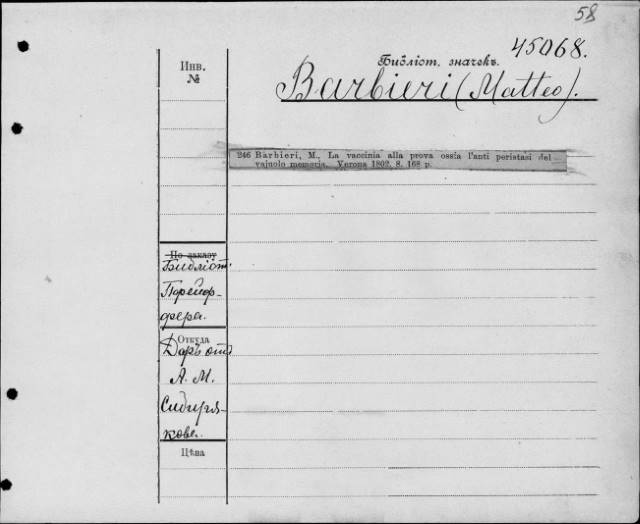 58
45068.
Инв.
№
Библіот. значекъ.
Barbieri (Matteo).
246 Barbieri, M., La vaccinia alla prova ossia l'anti peristasi del
vajuolo memoria. Verona 1802. 8. 168 p.
По заказу
Библіот.
Порейф-
фера.
Откуда
Даръ отъ
А. М.
Сибиря-
кова.
Цѣна